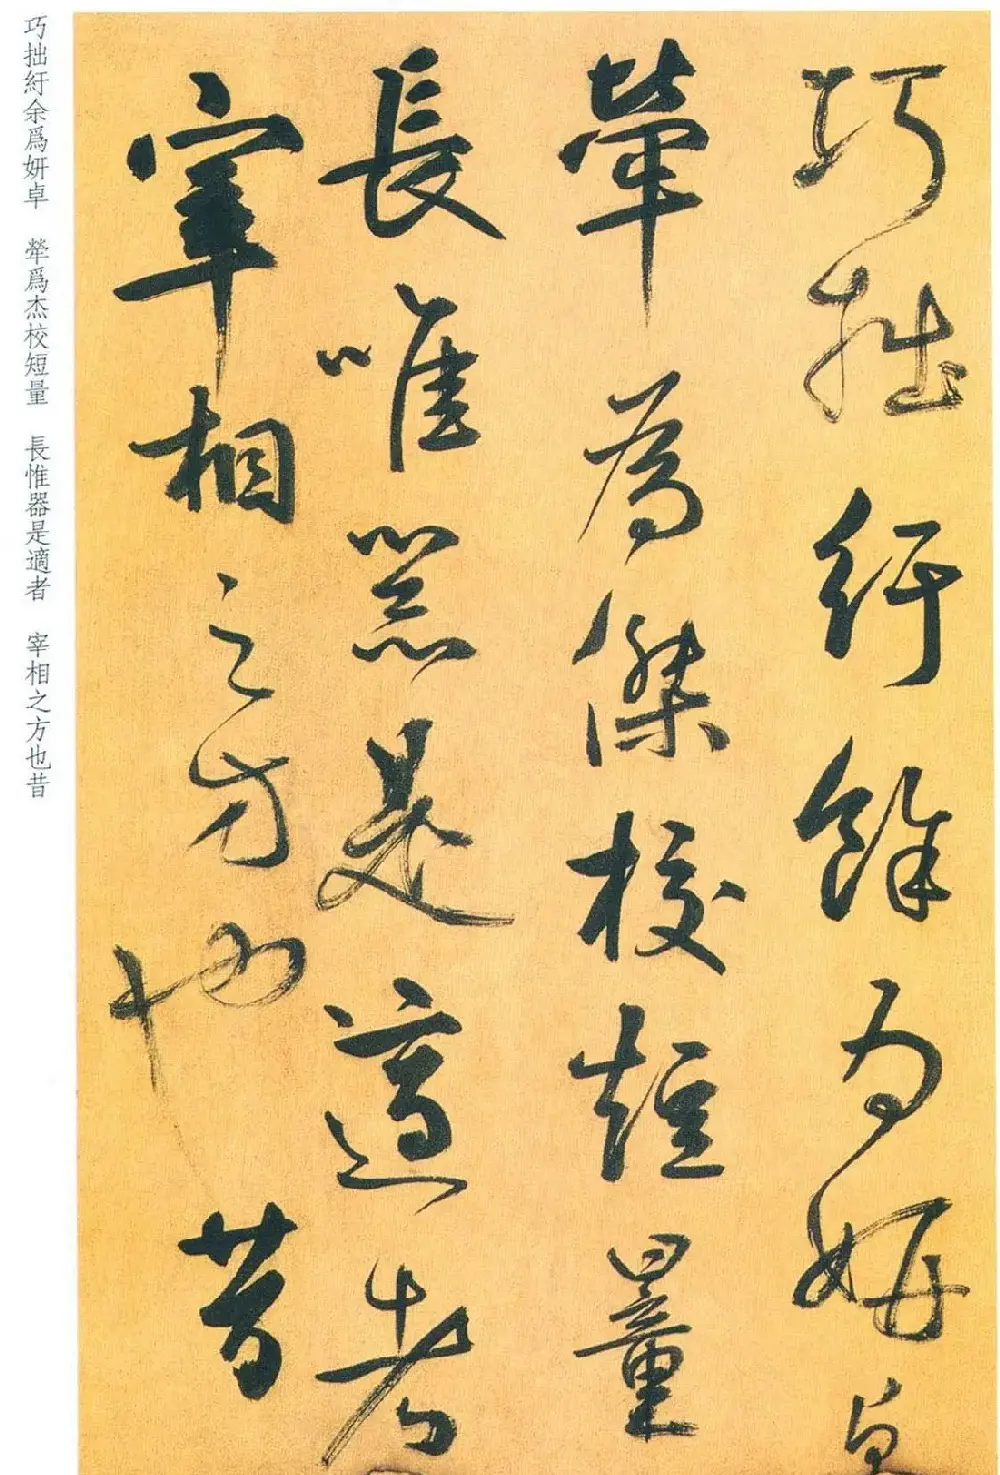 巧拙紆餘為妍卓
犖為傑校短量
長惟器是適者
宰相之方也昔
巧拙紆余爲妍卓 犖爲杰校短量 長惟器是適者 宰相之方也昔